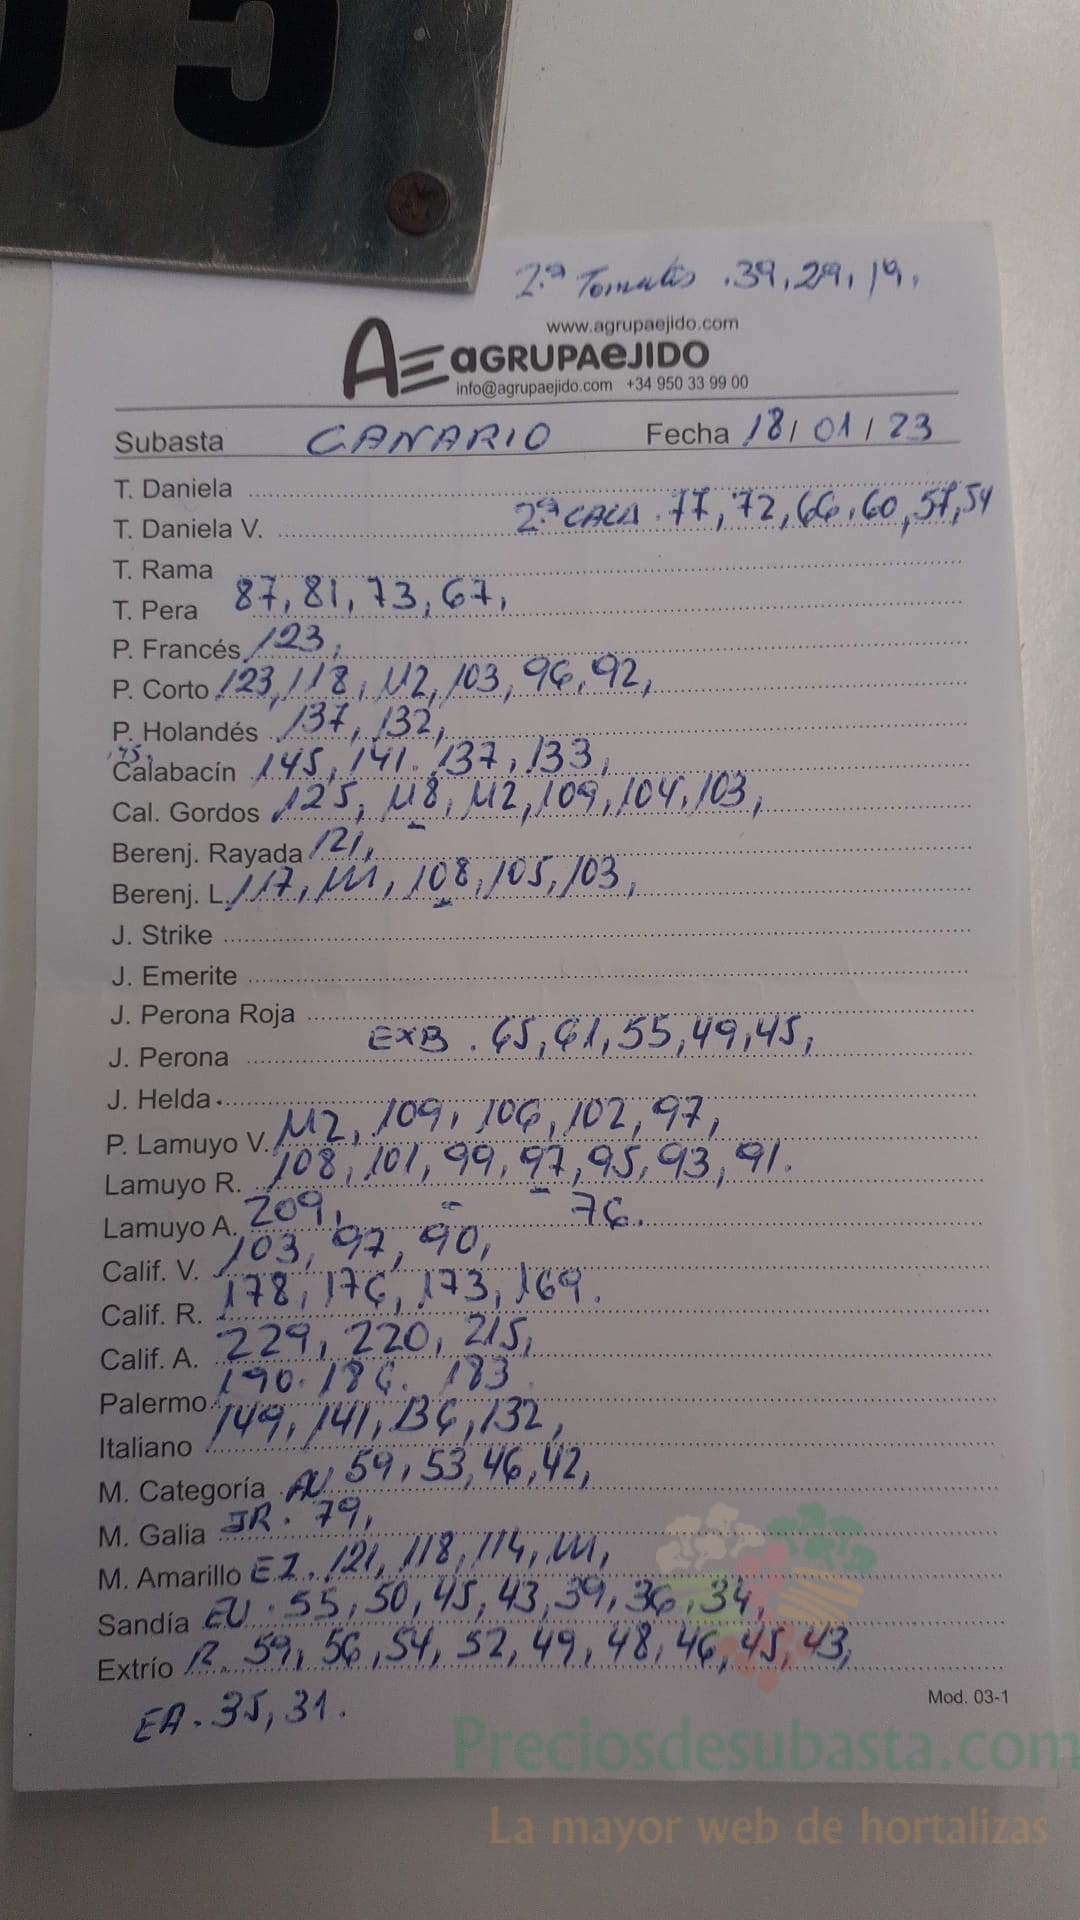 05
2.ª Tomates .39, 29, 19,
www.agrupaejido.com
AE aGRUPAeJIDO
info@agrupaejido.com +34 950 33 99 00
Subasta CANARIO Fecha 18/01/23
T. Daniela
T. Daniela V. 2ª CALA .77, 72, 66, 60, 57, 54
T. Rama
T. Pera 87, 81, 73, 67,
P. Francés 123,
P. Corto 123, 118, 112, 103, 96, 92,
P. Holandés 137, 132,
Calabacín 145, 141, 137, 133,
Cal. Gordos 125, 118, 112, 109, 104, 103,
Berenj. Rayada 121,
Berenj. L. 117, 111, 108, 105, 103,
J. Strike
J. Emerite
J. Perona Roja
J. Perona EXB . 65, 61, 55, 49, 45,
J. Helda
P. Lamuyo V. 112, 109, 106, 102, 97,
Lamuyo R. 108, 101, 99, 97, 95, 93, 91.
Lamuyo A. 209, 76.
Calif. V. 103, 97, 90,
Calif. R. 178, 176, 173, 169.
Calif. A. 229, 220, 215,
Palermo 190. 186. 183
Italiano 149, 141, 136, 132,
M. Categoría AU 59, 53, 46, 42,
M. Galia JR. 79,
M. Amarillo EZ. 121, 118, 114, 111,
Sandía EU. 55, 50, 45, 43, 39, 36, 34,
Extrío R. 59, 56, 54, 52, 49, 48, 46, 45, 43,
EA. 35, 31.
Mod. 03-1
Preciosdesubasta.com
La mayor web de hortalizas